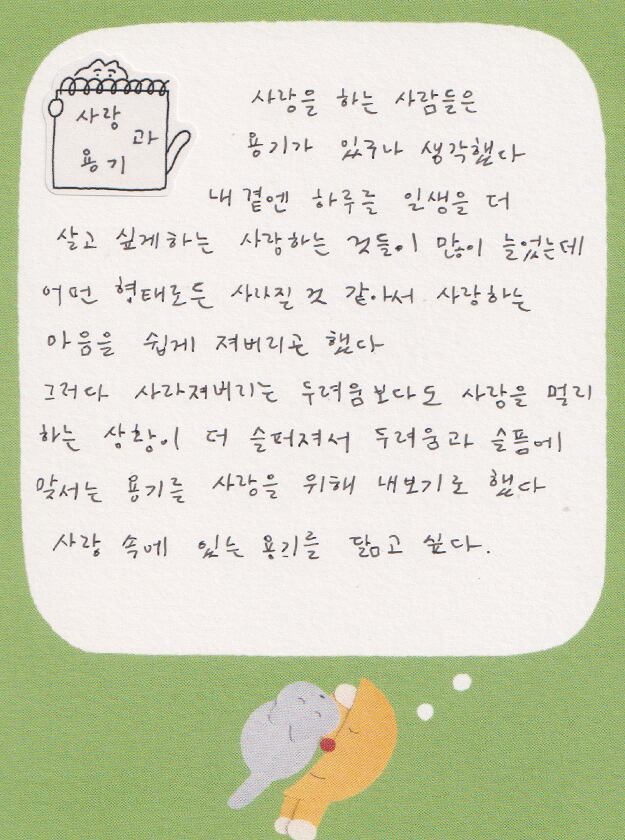 사랑
과
용기
사랑을 하는 사람들은
용기가 있구나 생각했다
내 곁엔 하루를 일생을 더
살고 싶게하는 사랑하는 것들이 많이 늘었는데
어떤 형태로든 사라질 것 같아서 사랑하는
마음을 쉽게 져버리곤 했다
그러다 사라져버리는 두려움보다도 사랑을 멀리
하는 상황이 더 슬퍼져서 두려움과 슬픔에
맞서는 용기를 사랑을 위해 내보기로 했다
사랑 속에 있는 용기를 닮고 싶다.